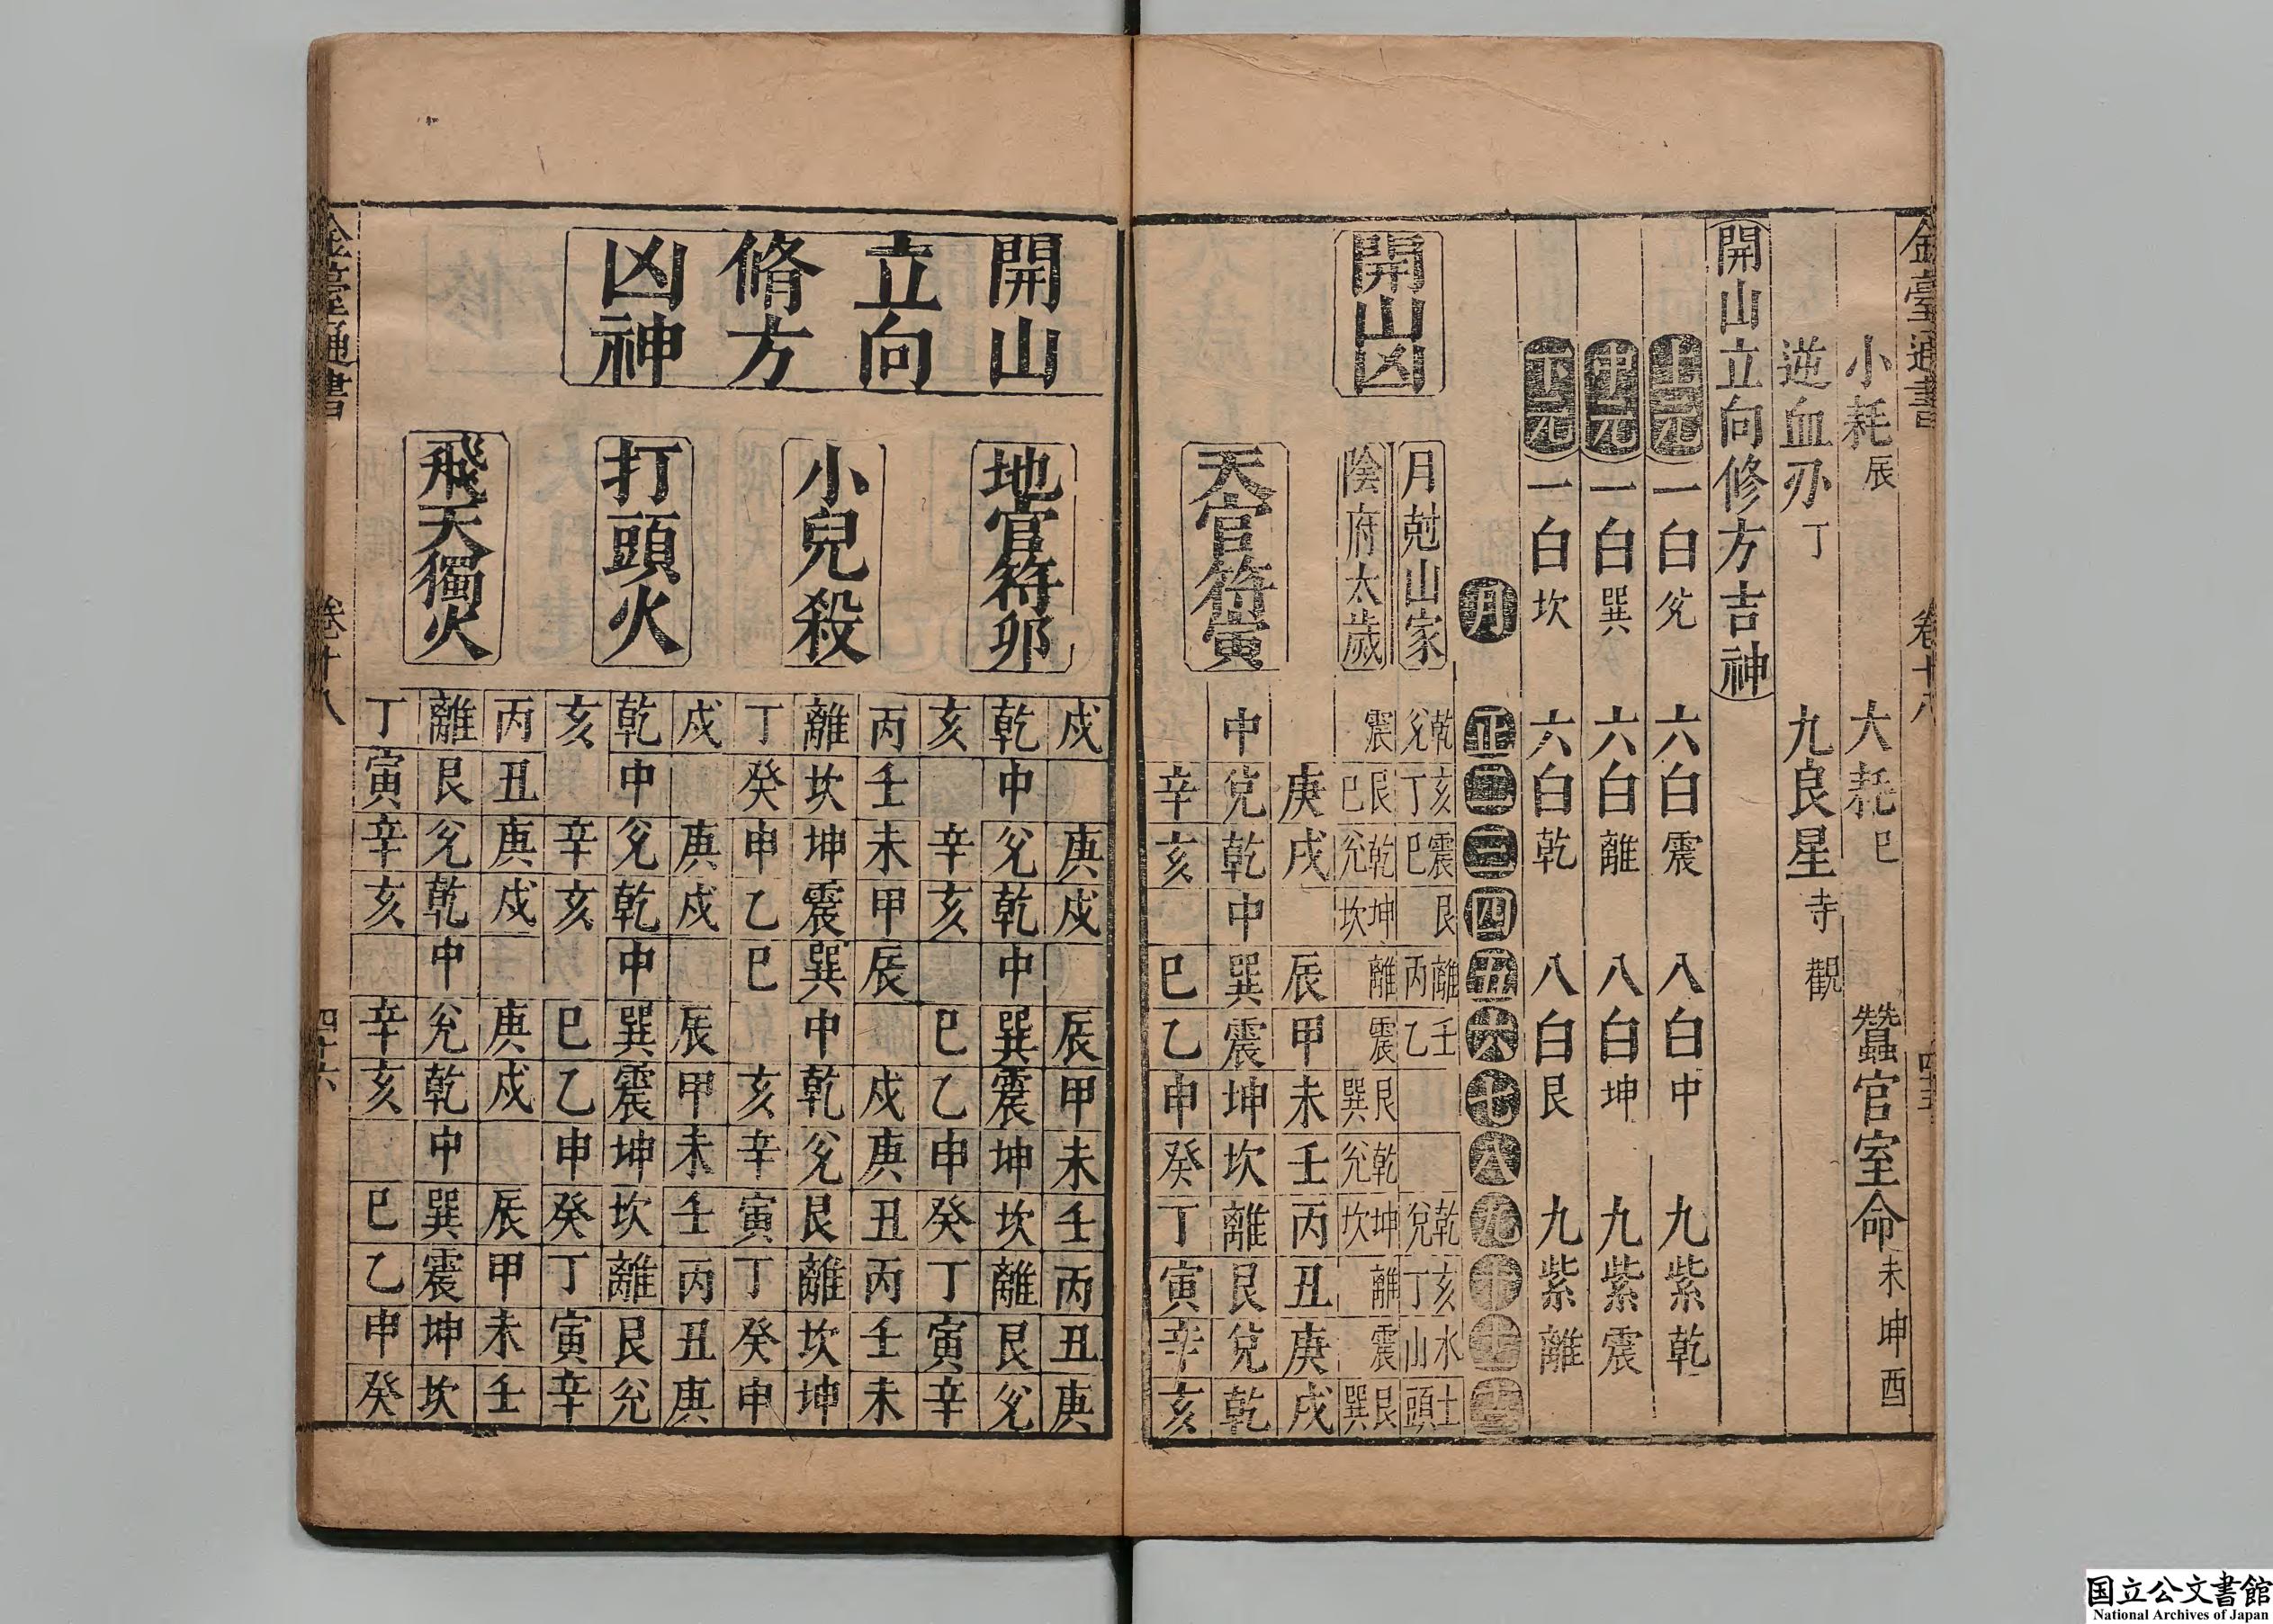 金臺通書 卷十八 四十五
小耗辰 大耗巳 蠶官室命未坤酉
逆血刃丁 九良星寺觀
開山立向修方吉神
上元 一白兊 六白震 八白中 九紫乾
中元 一白巽 六白離 八白坤 九紫震
下元 一白坎 六白乾 八白艮 九紫離
月 正 二 三 四 五 六 七 八 九 十 十一 十二
開山凶
月尅山家 乾兊 亥丁 震巳 艮 離丙 壬乙 乾兌 亥丁 水山 土頭
陰府太歲 震 艮巳 乾兊 坤坎 離 震 艮巽 乾兊 坤坎 離 震 艮巽
天官符寅
庚 戌 辰 甲 未 壬 丙 丑 庚 戌
中 兌 乾 中 巽 震 坤 坎 離 艮 兌 乾
辛 亥 巳 乙 申 癸 丁 寅 辛 亥
開山立向脩方凶神
地官符卯
戍 庚 戍 辰 甲 未 壬 丙 丑 庚
乾 中 兊 乾 中 巽 震 坤 坎 離 艮 兊
亥 辛 亥 巳 乙 申 癸 丁 寅 辛
小兒殺
丙 壬 未 甲 辰 戍 庚 丑 丙 壬 未
離 坎 坤 震 巽 中 乾 兊 艮 離 坎 坤
丁 癸 申 乙 巳 亥 辛 寅 丁 癸 申
打頭火
戍 庚 戍 辰 甲 未 壬 丙 丑 庚
乾 中 兊 乾 中 巽 震 坤 坎 離 艮 兊
亥 辛 亥 巳 乙 申 癸 丁 寅 辛
飛天獨火
丙 丑 庚 戍 庚 戍 辰 甲 未 壬
離 艮 兊 乾 中 兊 乾 中 巽 震 坤 坎
丁 寅 辛 亥 辛 亥 巳 乙 申 癸
金臺通書 卷十八 四十六
国立公文書館
National Archives of Japan